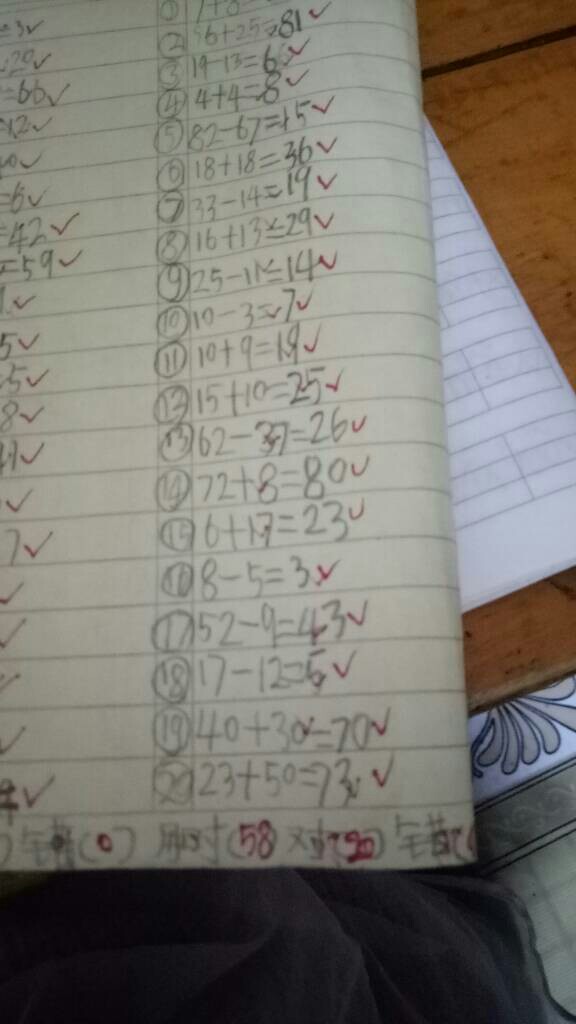 =3
=20
=66
=12
=6
=42
=59
5
=5
8
7
① 7+8
② 56+25=81
③ 19-13=6
④ 4+4=8
⑤ 82-67=15
⑥ 18+18=36
⑦ 33-14=19
⑧ 16+13=29
⑨ 25-11=14
⑩ 10-3=7
⑪ 10+9=19
⑫ 15+10=25
⑬ 62-37=26
⑭ 72+8=80
⑮ 6+17=23
⑯ 8-5=3
⑰ 52-9=43
⑱ 17-12=5
⑲ 40+30=70
⑳ 23+50=73
)午错(0) 用时(58) 对(20) 午错(